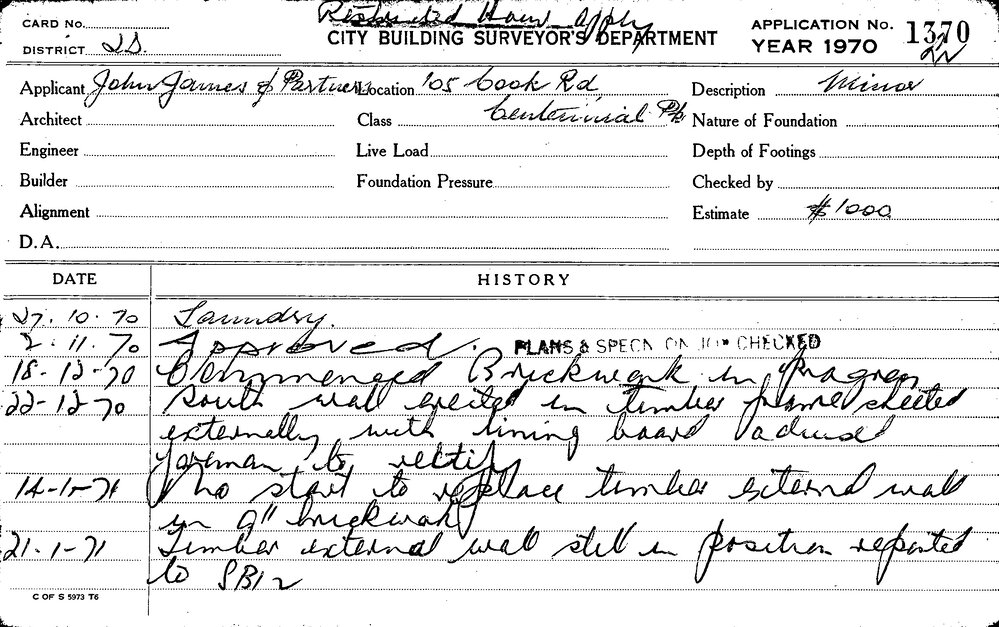 Restricted Hours Apply
CARD No.
CITY BUILDING SURVEYOR'S DEPARTMENT
APPLICATION No. 1370
22
DISTRICT 2S.
YEAR 1970
Applicant John James & Partners Location 105 Cook Rd Description Minor
Architect Class Centennial Pk Nature of Foundation
Engineer Live Load Depth of Footings
Builder Foundation Pressure Checked by
Alignment Estimate $1000
D.A.
DATE HISTORY
27.10.70 Laundry.
2.11.70 Approved. PLANS & SPECN ON JOB CHECKED
18-12-70 Commenced Brickwork in progress
22-12-70 South wall erected in timber frame sheeted
externally with lining board advised
foreman to rectify
14-1-71 No start to replace timber external wall
in 9" brickwork
21-1-71 Timber external wall still in position reported
to SBI2
C OF S 5973 T6